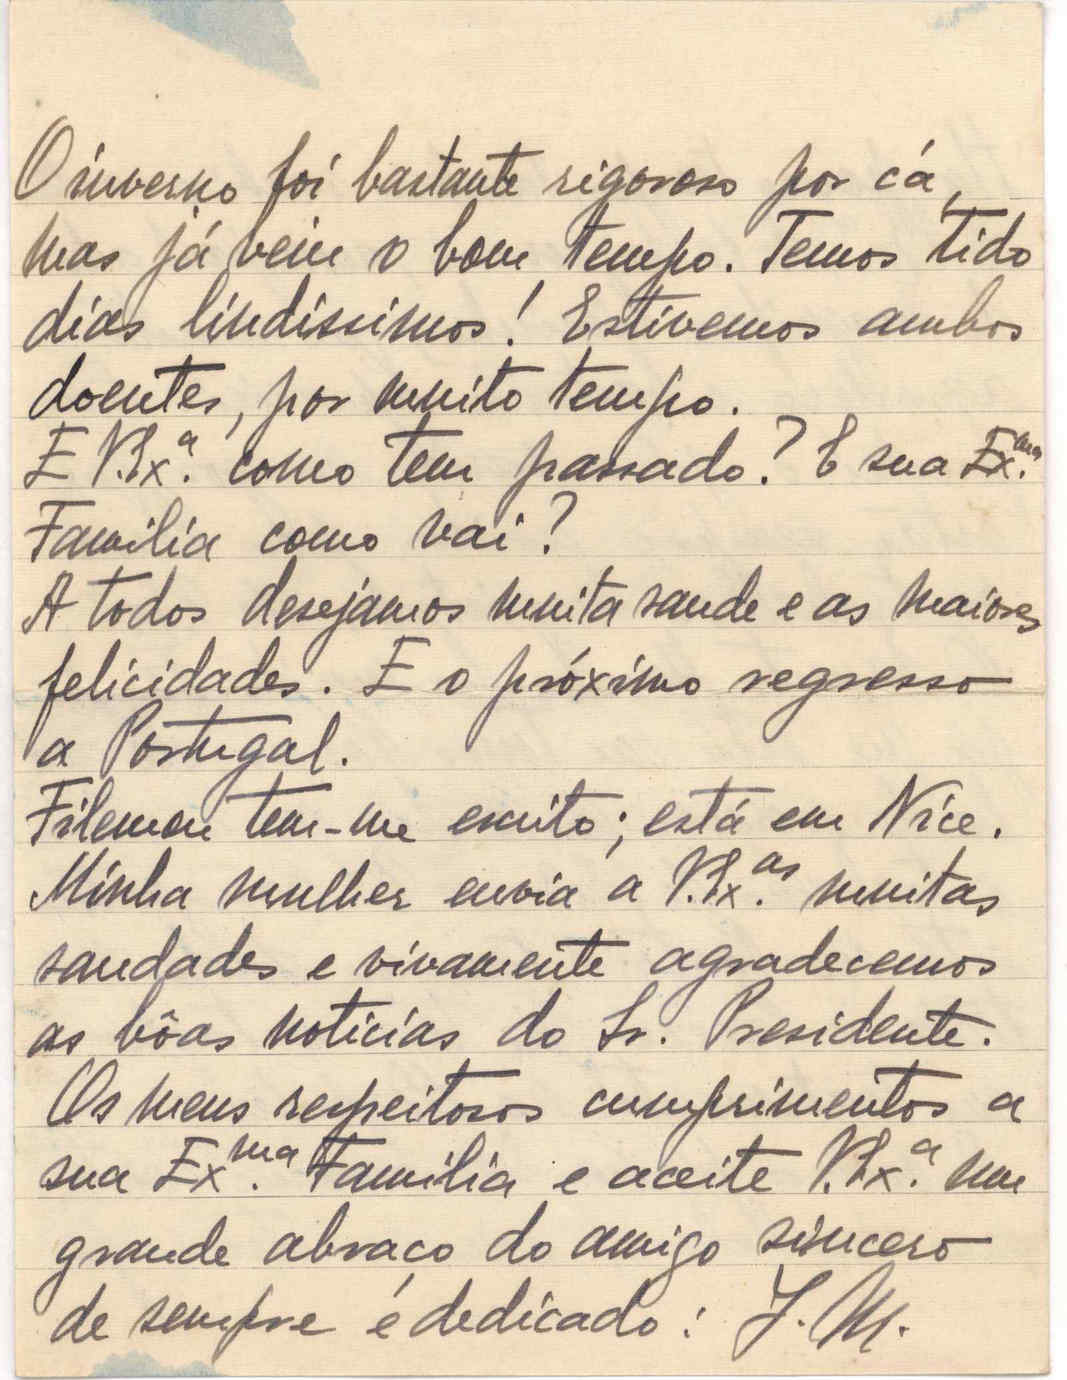 O inverno foi bastante rigoroso por cá,
mas já veiu o bom tempo. Temos tido
dias lindissimos! Estivemos ambos
doentes, por muito tempo.
E V.Ex.ª como tem passado? E sua Ex.ma
Familia como vai?
A todos desejamos muita saude e as maiores
felicidades. E o próximo regresso
a Portugal.
Filemon tem-me escrito; está em Nice.
Minha mulher envia a V.Ex.as muitas
saudades e vivamente agradecemos
as bôas noticias do Sr. Presidente.
Os meus respeitosos cumprimentos a
sua Ex.ma Familia e aceite V.Ex.ª um
grande abraço do amigo sincero
de sempre é dedicado: J. M.